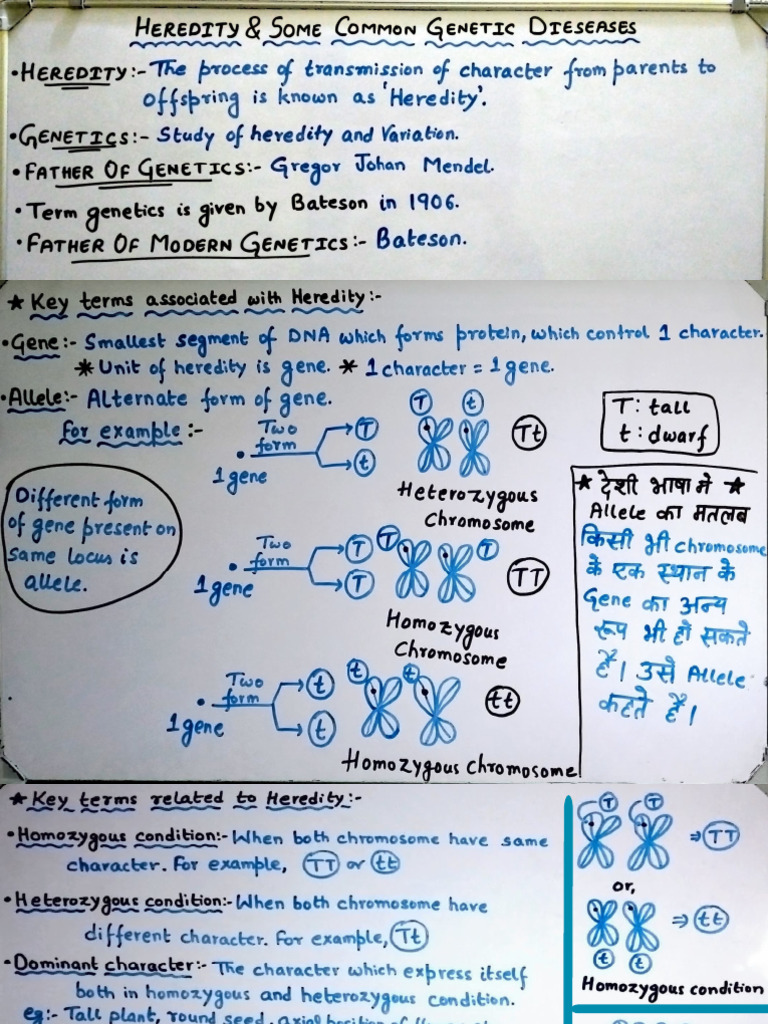 HEREDITY & SOME COMMON GENETIC DIESEASES
• HEREDITY:- The process of transmission of character from parents to
offspring is known as 'Heredity'.
• GENETICS:- Study of heredity and Variation.
• FATHER OF GENETICS:- Gregor Johan Mendel.
• Term genetics is given by Bateson in 1906.
• FATHER OF MODERN GENETICS:- Bateson.
★ Key terms associated with Heredity:-
• Gene:- Smallest segment of DNA which forms protein, which control 1 character.
* Unit of heredity is gene. * 1 character = 1 gene.
• Allele:- Alternate form of gene.
For example:-
1 gene
Two
form
T
t
T
t
Tt
Heterozygous
Chromosome
T: tall
t: dwarf
Different form
of gene present on
same locus is
allele.
1 gene
Two
form
T
T
T
T
TT
Homozygous
Chromosome
1 gene
Two
form
t
t
t
t
tt
Homozygous Chromosome
★ देशी भाषा मे ★
Allele का मतलब
किसी भी chromosome
के एक स्थान के
Gene का अन्य
रूप भी हो सकते
हैं। उसे Allele
कहते हैं।
★ Key terms related to Heredity:-
• Homozygous condition:- When both chromosome have same
character. For example, TT or tt
• Heterozygous condition:- When both chromosome have
different character. For example, Tt
• Dominant character:- The character which express itself
both in homozygous and heterozygous condition.
eg:- Tall plant, round seed, axial position of
T
T
⇒ TT
or,
⇒ tt
t
t
Homozygous condition